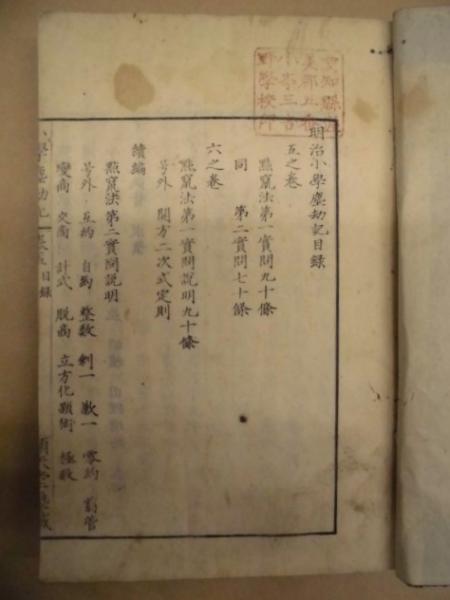 明治小學塵劫記目録
五之巻
點竄法第一實問九十條
同 第二實問七十條
六之巻
點竄法第一實問説明九十條
号外 開方二次式定則
續編
點竄法第二實問説明
号外 互約 自約 整数 剰一 朒一 零約 翦管
變商 交商 計式 脱商 立方化顆術 極数
小學塵劫記 巻五 目録